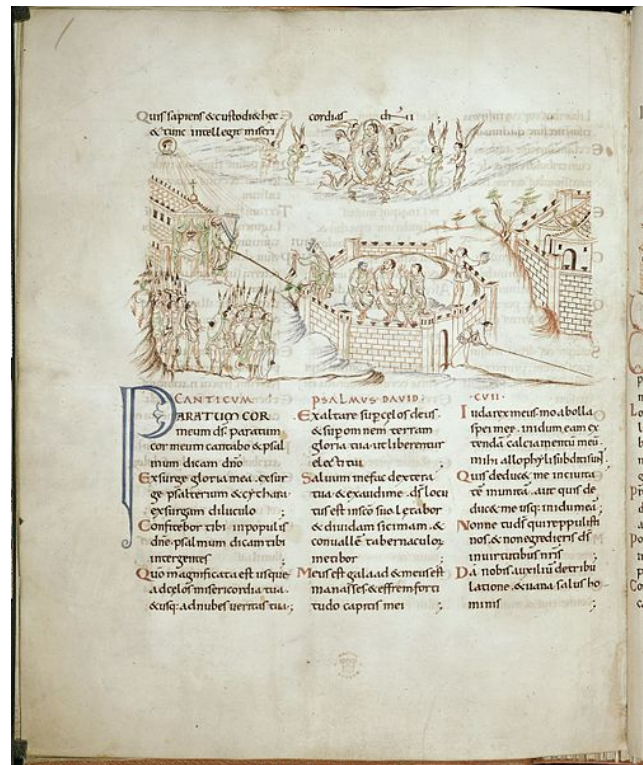 Quis sapiens & custodi& hec
& tunc intelleg& miseri
cordias dñi ;
CANTICUM
PARATUM COR
meum ds. paratum
cor meum cantabo & psal
mum dicam dño
Exsurge gloria mea. exsur
ge psalterium & cythara
exsurgam diluculo ;
Confitebor tibi in populis
dne. psalmum dicam tibi
in gentes
Quo magnificata est usque
ad celos misericordia tua.
& usq: ad nubes veritas tua ;
PSALMUS DAVID
Exaltare sup celos deus.
& sup omnem terram
gloria tua. ut liberentur
electi tui
Salvum me fac dextera
tua & exaudi me. ds locu
tus est in sco suo. l&abor
& dividam sicimam. &
convallē tabernaculor
metibor
Meus est galaad & meus est
manasses & effrem forti
tudo capitis mei ;
CVII
Iuda rex meus. moab olla
spei meę. in idumeam ex
tendā calciamentū meū
mihi allophyli subditi sunt
Quis deduc& me in civita
tē munitā. aut quis de
duc& me usq: in idumeā
Nonne tu ds qui reppulisti
nos. & non egredieris ds
in virtutibus nris
Da nobis auxiliū de tribu
latione. & vana salus ho
minis ;